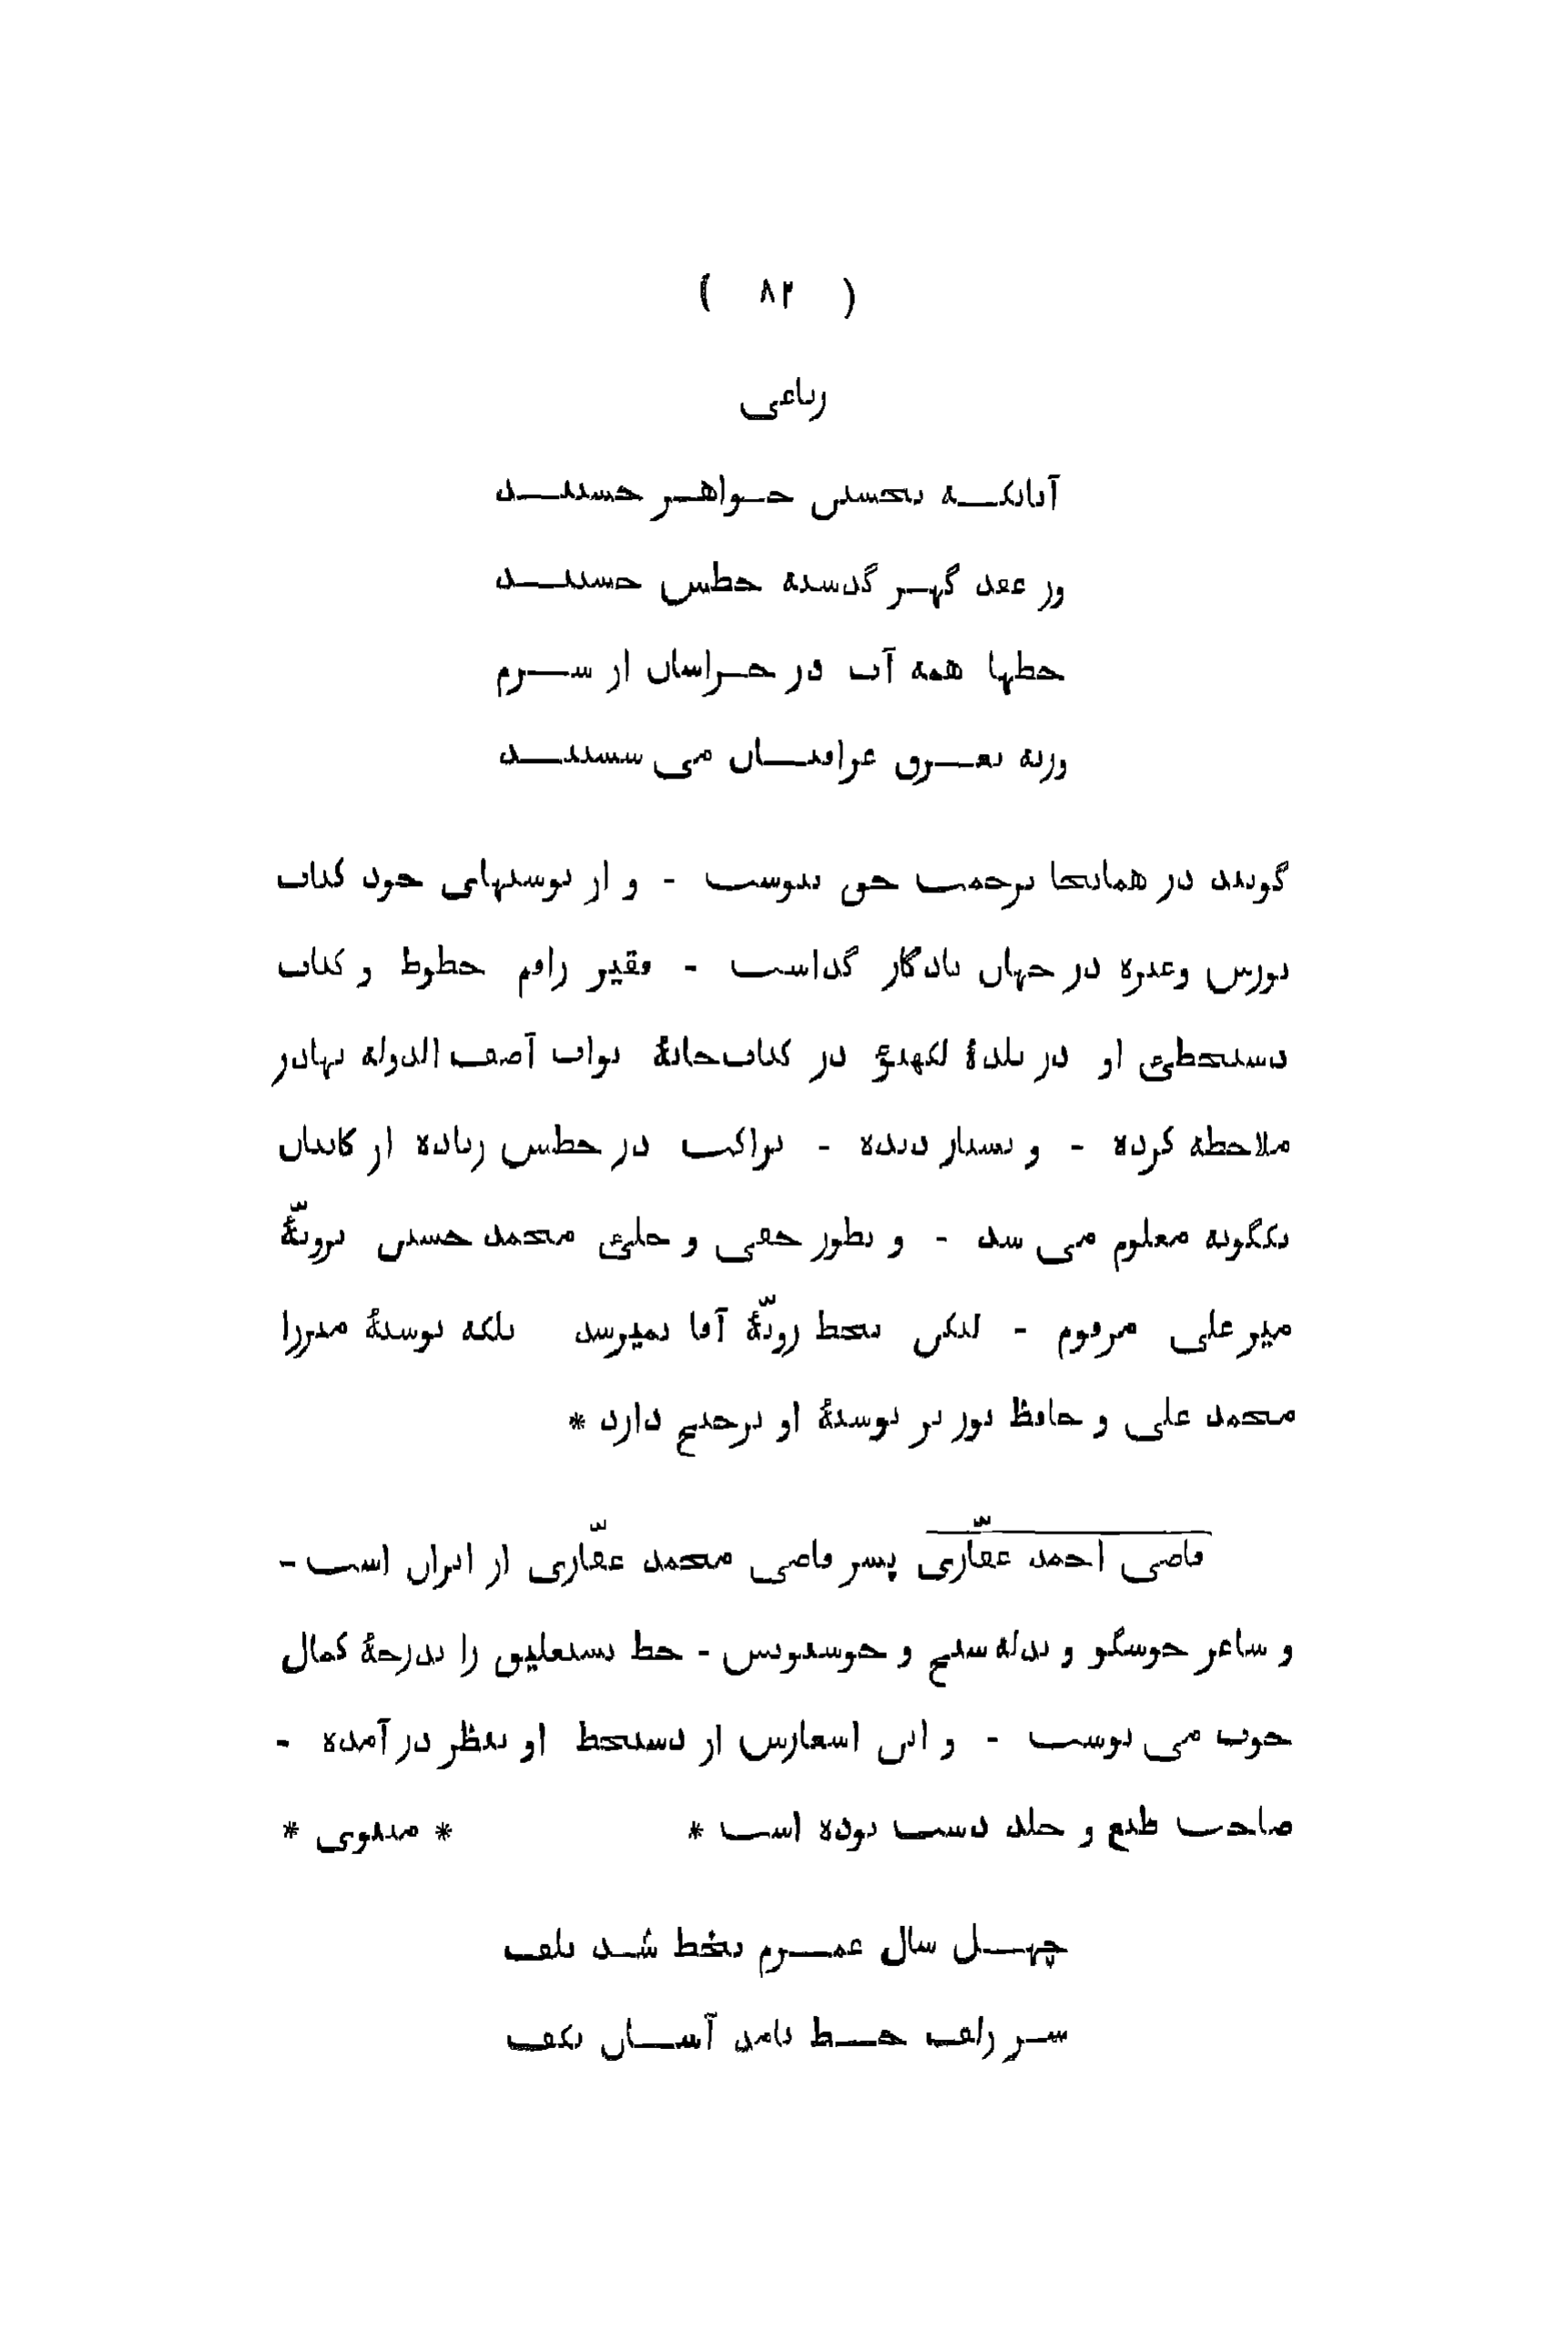 ( ۸۲ )
رباعی
آنانکه بحسن جواهر جستند
وز عقد گهر گذشته خطش جستند
خطها همه آب در خراسان از شرم
ورنه بعرق عراقیان می شستند
گویند در همانجا برحمت حق پیوست - و از نوشتهای خود کتاب
نورس وغیره در جهان یادگار گذاشت - فقیر راقم خطوط و کتاب
دستخطیٔ او در بلدهٔ لکهنؤ در کتاب‌خانهٔ نواب آصف الدوله بهادر
ملاحظه کرده - و بسیار دیده - نزاکت در خطش زیاده از کاتبان
یکگونه معلوم می شد - و بطور خفی و جلیٔ محمد حسین برویّهٔ
میر علی مرقوم - لیکن بخط رویّهٔ آقا نمیرسد بلکه نوشتهٔ میرزا
محمد علی و حافظ نور بر نوشتهٔ او ترجیح دارد *
قاضی احمد غفّاری پسر قاضی محمد غفّاری از ایران است -
و شاعر خوشگو و بذله سنج و خوشنویس - خط نستعلیق را بدرجهٔ کمال
خوب می نوشت - و این اشعارش از دستخط او بنظر در آمده -
صاحب طبع و جلد دست بوده است * * مثنوی *
چهل سال عمرم بخط شد تلف
سر زلف خط نامد آسان بکف